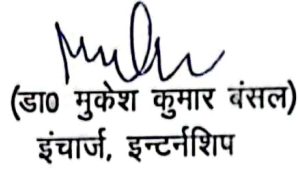 (डा0 मुकेश कुमार बंसल)
इंचार्ज, इन्टर्नशिप